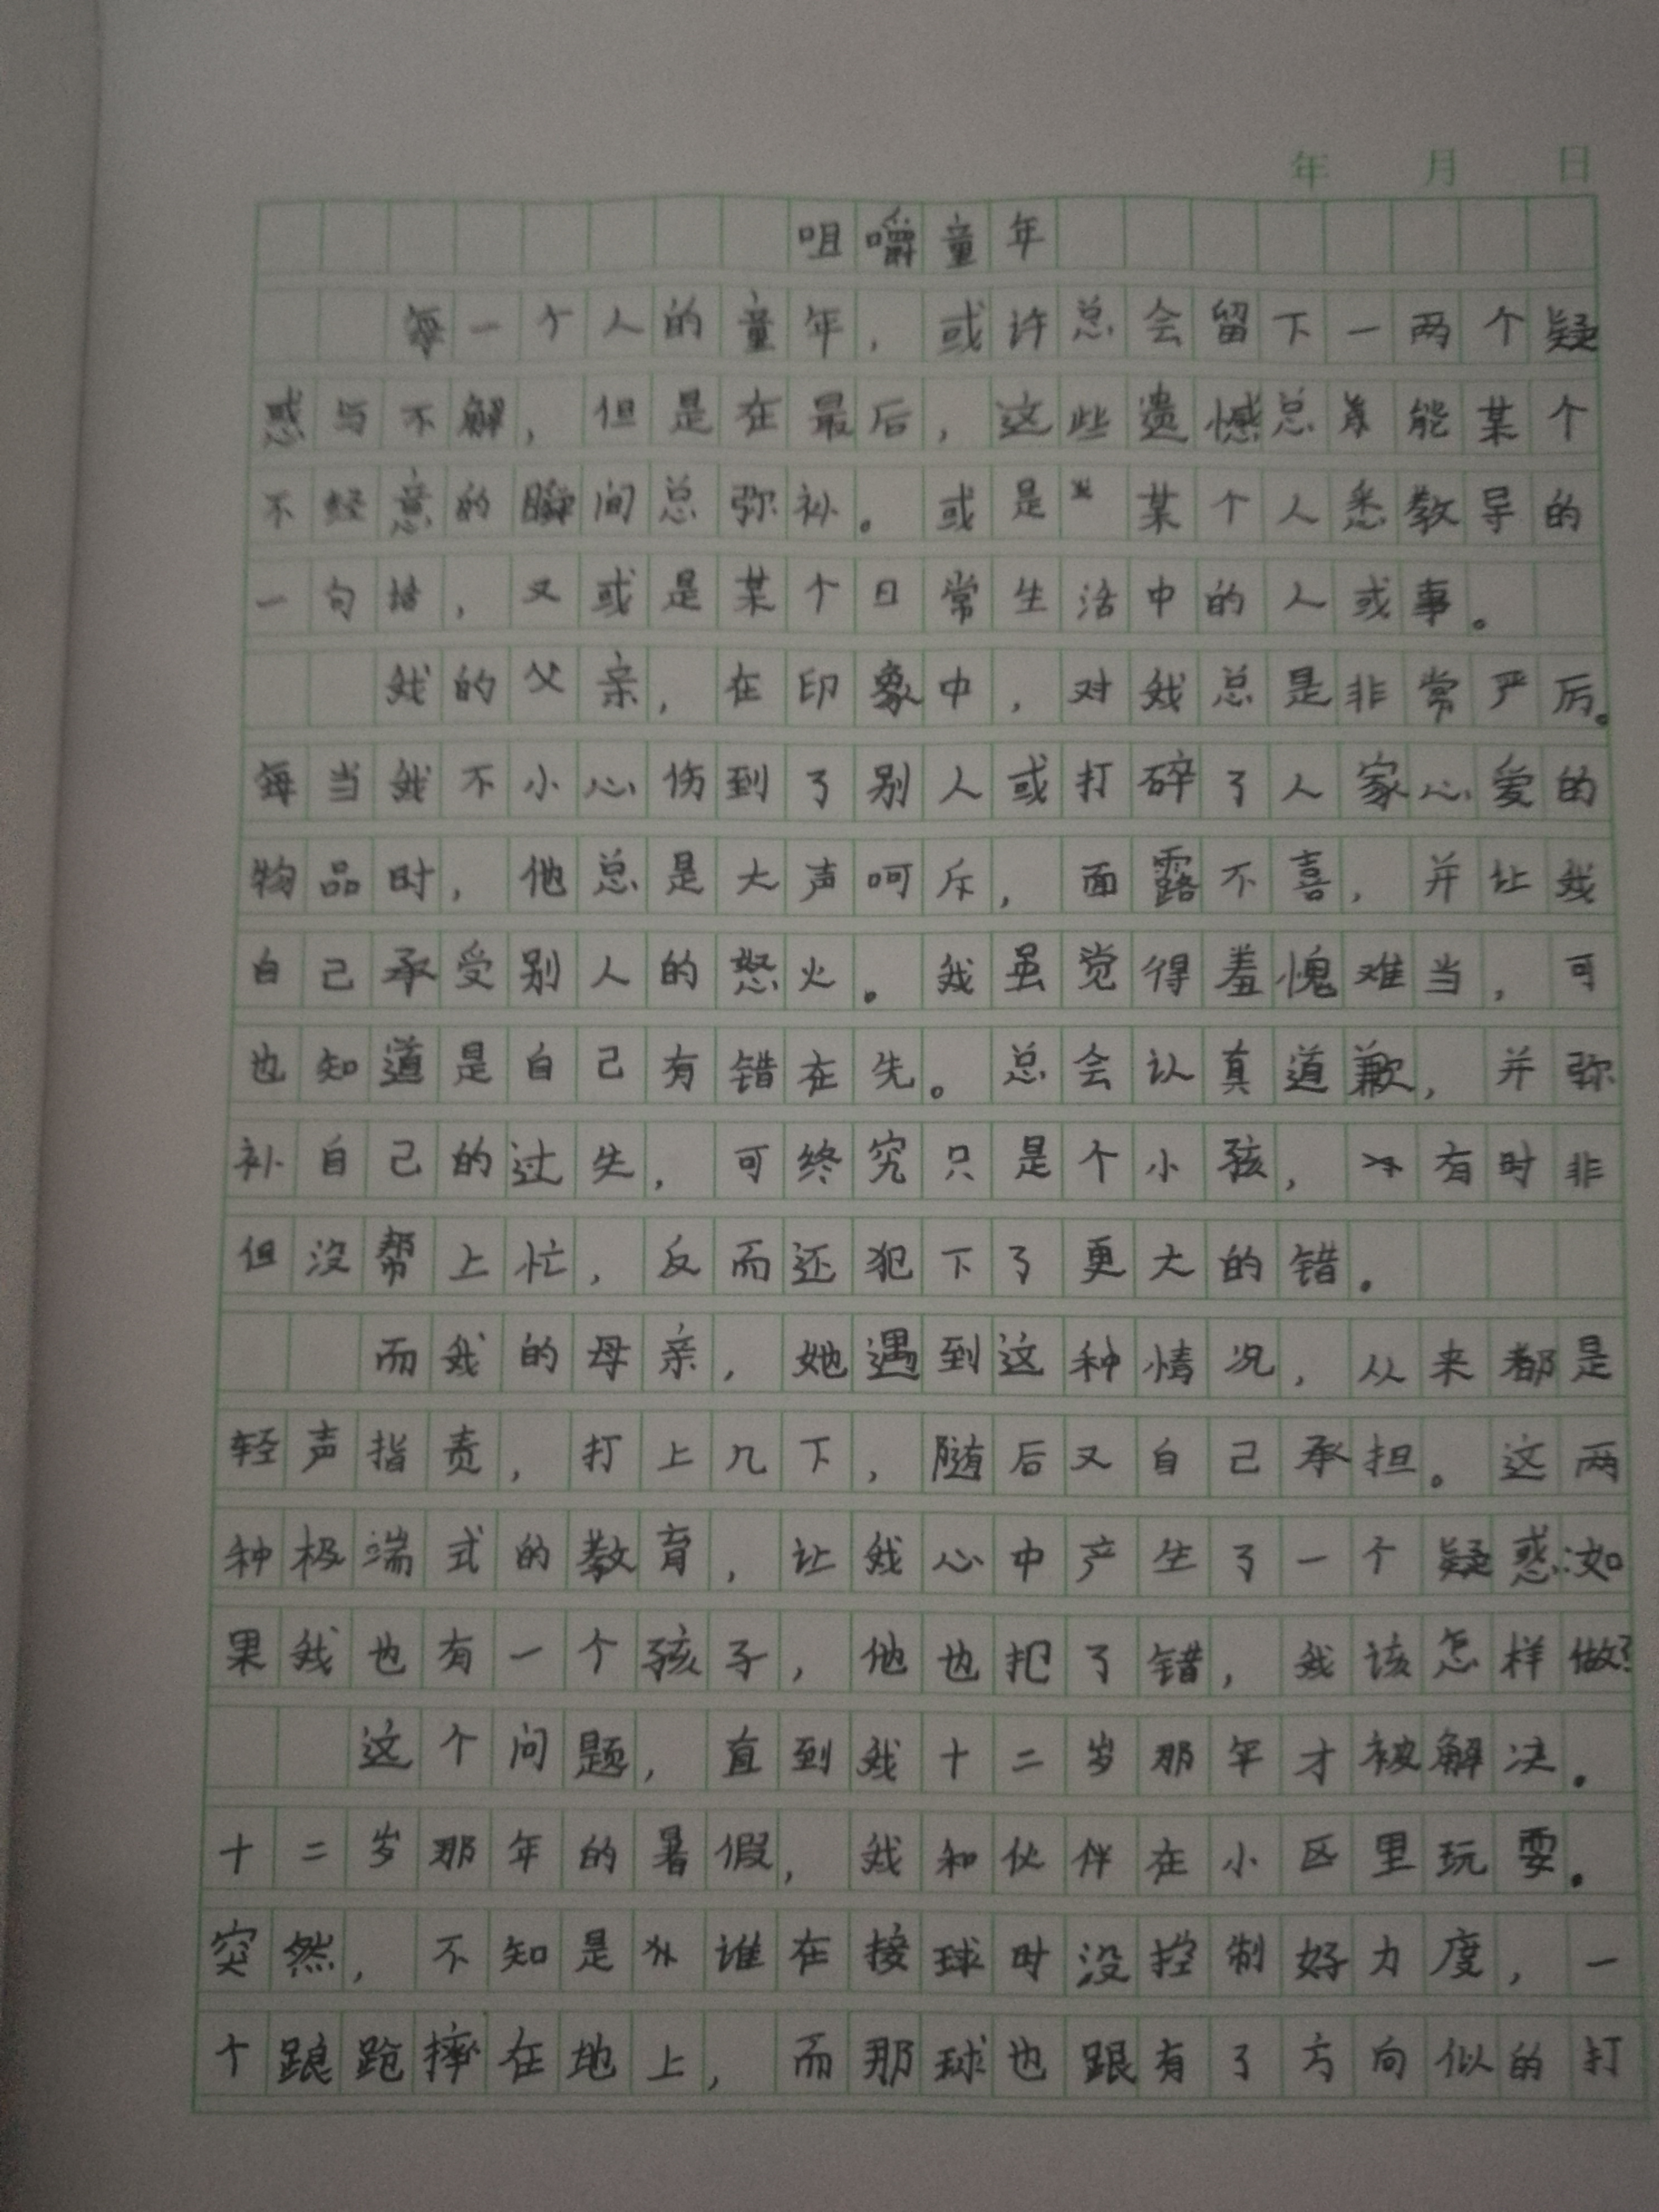 年 月 日
咀嚼童年
每一个人的童年，或许总会留下一两个疑
惑与不解，但是在最后，这些遗憾总能某个
不经意的瞬间总弥补。或是某个人悉教导的
一句话，又或是某个日常生活中的人或事。
我的父亲，在印象中，对我总是非常严厉。
每当我不小心伤到了别人或打碎了人家心爱的
物品时，他总是大声呵斥，面露不喜，并让我
自己承受别人的怒火。我虽觉得羞愧难当，可
也知道是自己有错在先。总会认真道歉，并弥
补自己的过失，可终究只是个小孩，有时非
但没帮上忙，反而还犯下了更大的错。
而我的母亲，她遇到这种情况，从来都是
轻声指责，打上几下，随后又自己承担。这两
种极端式的教育，让我心中产生了一个疑惑：如
果我也有一个孩子，他也犯了错，我该怎样做？
这个问题，直到我十二岁那年才被解决。
十二岁那年的暑假，我和伙伴在小区里玩耍。
突然，不知是谁在接球时没控制好力度，一
个踉跄摔在地上，而那球也跟有了方向似的打